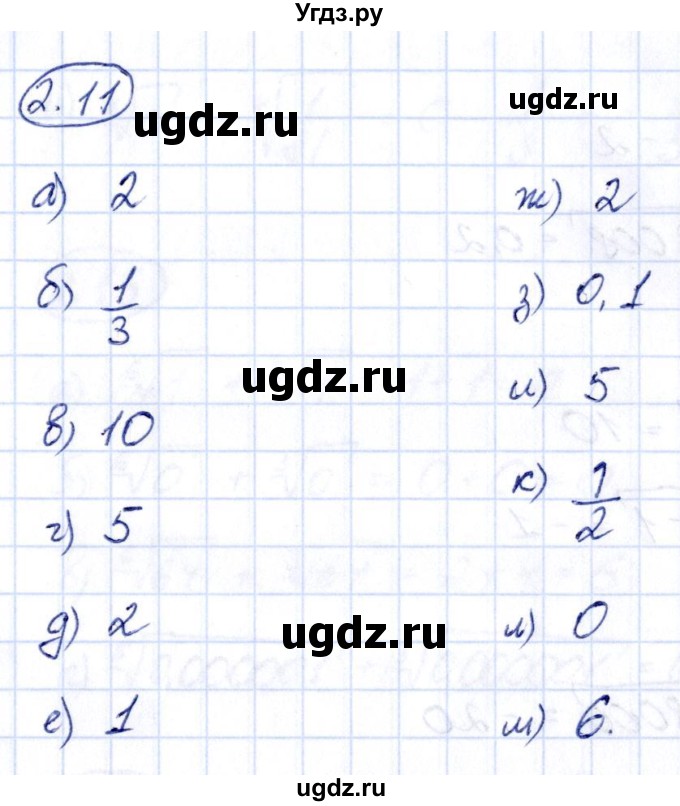 Угдз.ру
2.11
ugdz.ru
ugdz.ru
а) 2
б) 1/3
в) 10
г) 5
д) 2
е) 1
ж) 2
з) 0,1
и) 5
к) 1/2
л) 0
м) 6.
ugdz.ru
ugdz.ru
ugdz.ru